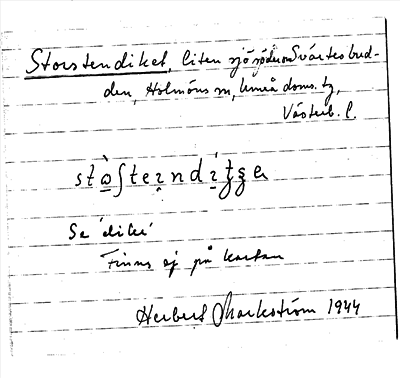 Storstendiket, liten sjö söder om Svartesbud-
den, Holmöns sn, Umeå doms. tg,
Västerb. l.
Se 'dike'
Finns ej på kartan
Herbert Markström 1944